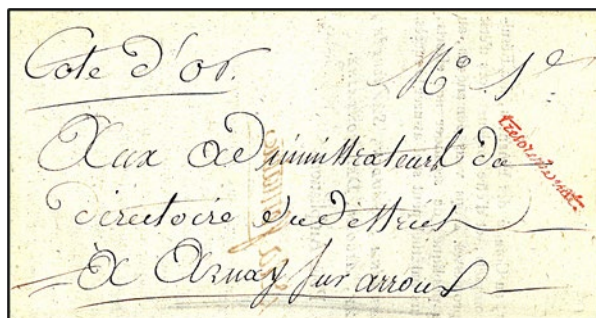 Cote d'Or. N.° 1.e
Aux administrateurs du
directoire du district
A Arnay sur arroux